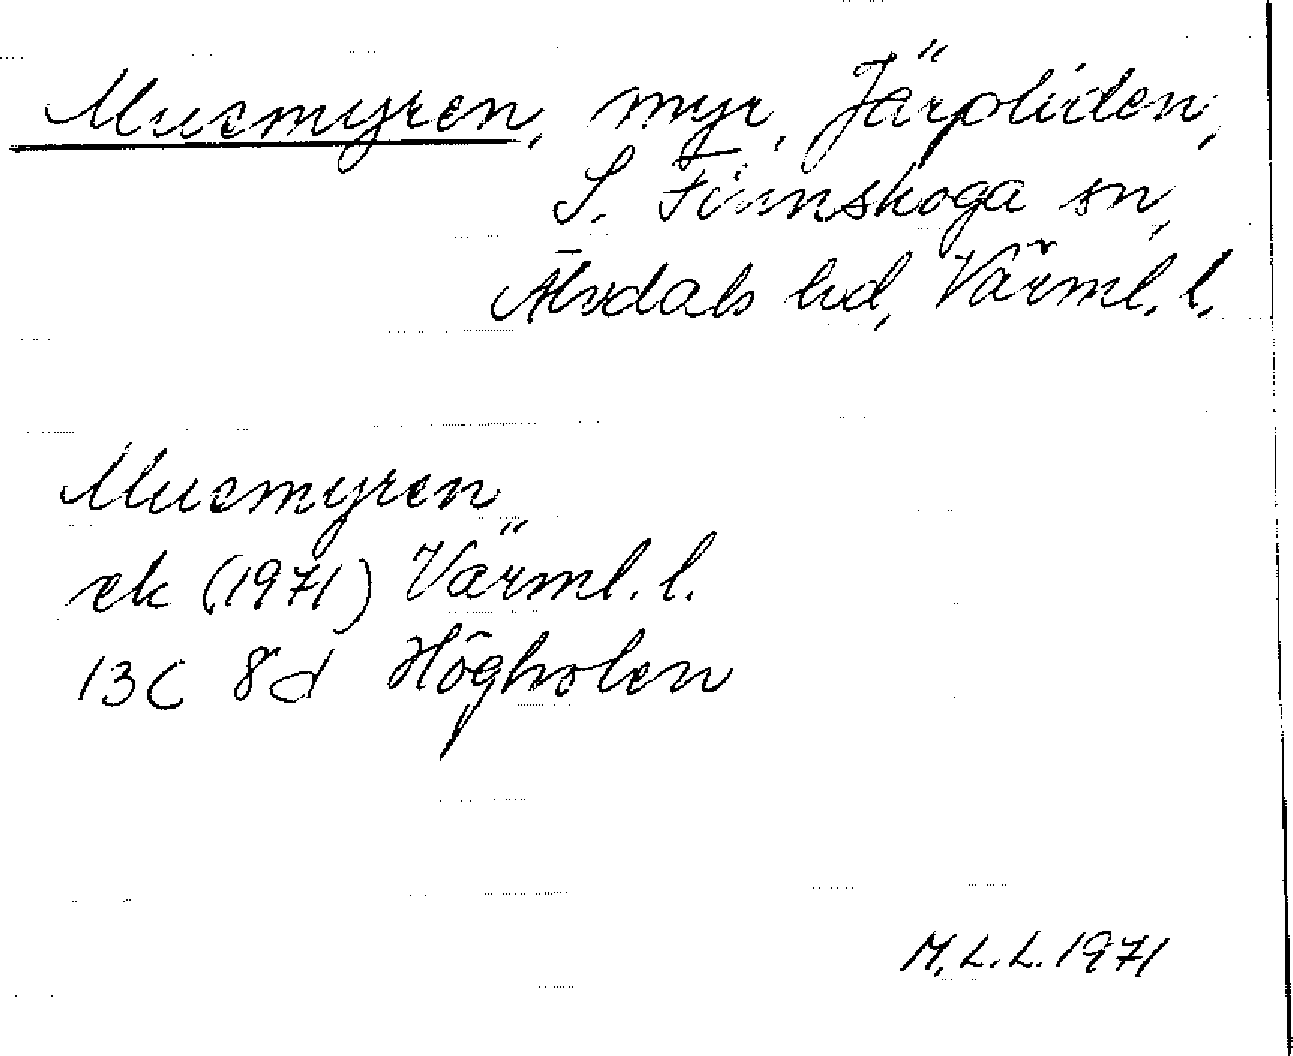 Musmyren, myr, Järpliden,
S. Finnskoga sn,
Älvdals hd, Värml. l.
Musmyren
ek (1971) Värml. l.
13C 8d Högholen
M.L.L. 1971